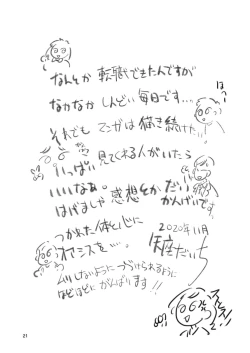 なんとか転職できたんですが
なかなかしんどい毎日です…
はーっ
それでもマンガは描き続けたい
いっぱい見てくれる人がいたら
いいなぁ。
はげましや感想とかだい
かんげいです。
2020年11月
つかれた体と心に
オアシスを…。
ムリしないようにつづけられるように
ほどほどにがんばります!!
21